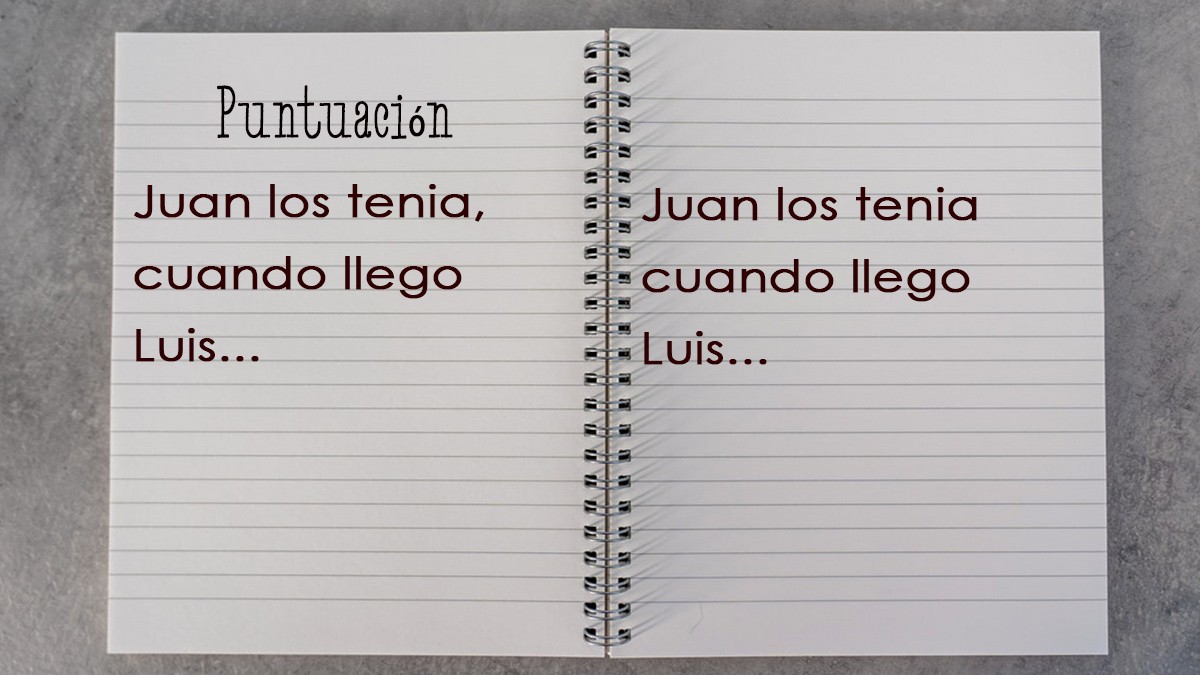 Puntuación
Juan los tenia,
cuando llego
Luis...
Juan los tenia
cuando llego
Luis...